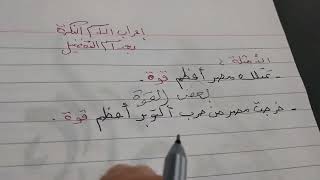 إعراب الاسم النكرة
بعد اسم التفضيل
الأمثلة :
- تمتلك مصر أعظم قوة .
بعض القوة
- خرجت مصر من حرب أكتوبر أعظم قوة .